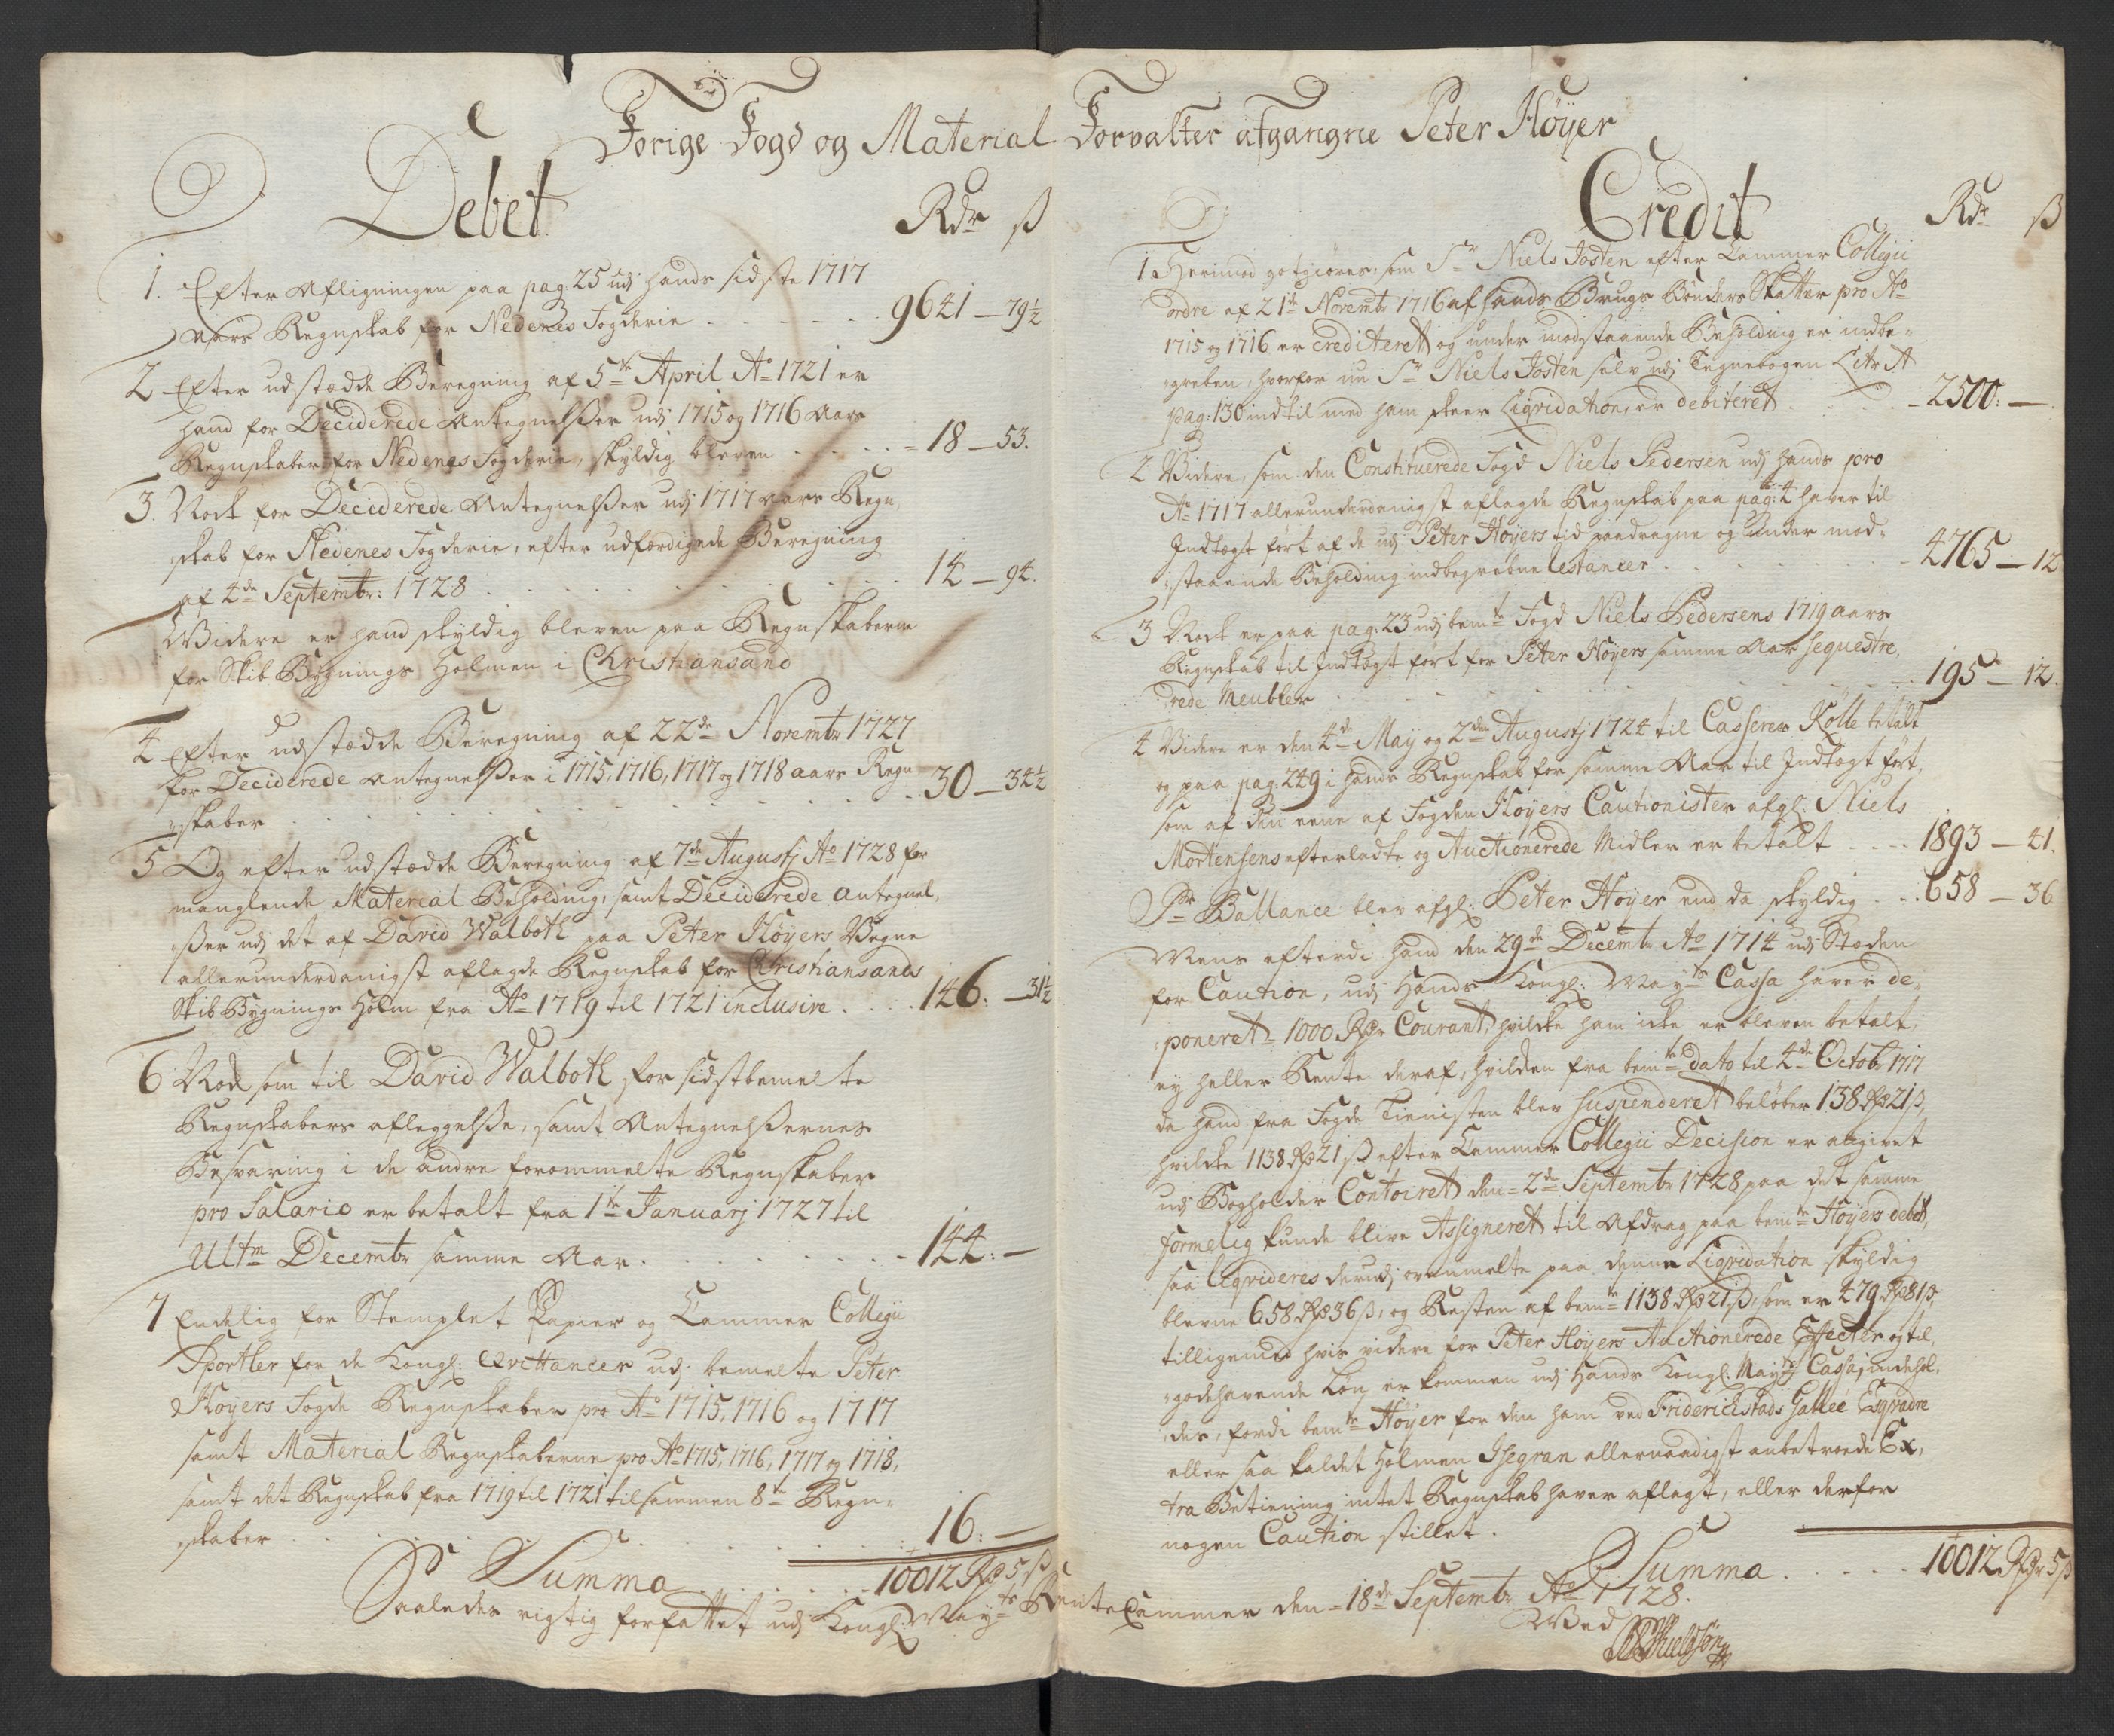 Forige Fogd og Material Forvalter afgangne Peter Höyer
Debet
Rdr ß
1. Efter Afligningen paa pag: 25 udj hands sidste 1717
Aars Regnskab for Nedenes Fogderie . . . . . 9641 – 79½
2 Efter udstædde Beregning af 5te April Ao 1721 er
hand for Deciderede Antegnelsser udj 1715 og 1716 Aars
Regnskaber for Nedenes Fogderie, skyldig bleven . . . . . 18 – 53.
3. Nock for Deciderede Antegnelsser udj 1717 Aars Regn,
skab for Nedenes Fogderie, efter udferdigede Beregning
af 4de Septembr: 1728 . . . . . 14 – 94.
Widere er hand skyldig bleven paa Regnskaberne
for Skib Bygnings Holmen i Christiansand
4 Efter udstædde Beregning af 22de Novembr 1727
for Deciderede Antegnelsser i 1715, 1716, 1717 og 1718 aars Regn
skaber . . . . . 30 – 34½
5 Og efter udstædde Beregning af 7de Augustj Ao 1728 for
manglende Material Beholding, samt Deciderede Antegnel,
sser udj det af David Walboth paa Peter Höyers Vegne
allerunderdanigst aflagde Regnskab for Christiansands
Skib Bygnings Holm fra Ao 1719 til 1721 inclusive . . . . 146: – 31½
6 Nock som til David Walboth for sidstbemelte
Regnskabers afleggelsse, samt Antegnelssernes
Besvaring i de andre forommelte Regnskaber
pro Salario er betalt fra 1te Januarj 1727 til
Ultm Decembr samme Aar . . . . . 144: –
7 Endelig for Stemplet Papier og Cammer Collegii
Sportler for de Kongl: Qvittancer udj bemelte Peter
Höyers Fogde Regnskaber pro Ao 1715, 1716 og 1717
samt Material Regnskaberne pro Ao 1715, 1716, 1717 og 1718,
samt det Regnskab fra 1719 til 1721 tilsammen 8te Regn-
skaber . . . . . 16: –
Summa . . . . . 10012 Rdr 5 ß
Credit
Rdr ß
1 Herimod godtgiøres, som Sr Niels Josten efter Cammer Collegii
ordre af 21de Novembr 1716 af hands Brugs Bönders Skatter pro Ao
1715 og 1716 er crediteret og under modstaaende Beholding er indbe-
greben, hvorfor nu Sr Niels Josten selv udj Tegnebogen Litr A
pag: 130 indtil med ham skeer Liqvidation, er debiteret . . . . 2500: –
2 Widere, som den Constituerede Fogd Niels Pedersen udj hands pro
Ao 1717 allerunderdanigst aflagde Regnskab paa pag: 4 haver til
Indtægt fört af de udj Peter Höyers tid paadragne og under mod-
staaende Beholding indbegrebne Restancer . . . . . 4765 – 12
3 Nock er paa pag: 23 udj bemte Fogd Niels Pedersens 1719 aars
Regnskab til Indtægt fört for Peter Höyers samme Aar sequestre,
rede Meubler . . . . . 195 – 12.
4 Widere er den 4de May og 2den Augustj 1724 til Casserer Kölle betalt
og paa pag: 249 i hands Regnskab for samme Aar til Indtægt fört,
som af den eene af Fogden Höyers Cautionister afgl: Niels
Mortensens efterladte og Auctionerede Midler er betalt . . . . 1893 – 41.
Pr Ballance blev afgl: Peter Höyer end da skyldig . . . 658 – 36
Mens efterdi hand den 29de Decembr Ao 1714 udj Stæden
for Caution, udj Hands Kongl: Mayts Cassa haver de-
poneret 1000 Rdr Courant, hvilcke ham icke er bleven betalt,
ey heller Rente deraf, hvilcken fra bemte dato til 4de Octobr 1717
da hand fra Fogde Tienisten blev suspenderet beløber 138 Rdr 21 ß,
hvilcke 1138 Rdr 21 ß efter Cammer Collegii Decision er angivet
udj Bogholder Contoiret den 2den Septembr 1728 paa det samme
formelig kunde blive Assigneret til Afdrag paa bemte Höyers debet,
saa liqvideres derudj ommelte paa denne Liqvidation skyldig
blevne 658 Rdr 36 ß, og Resten af bemte 1138 Rdr 21 ß, som er 479 Rdr 81 ß,
tilligemed hvis videre for Peter Höyers Auctionerede Effecter og til-
godehavende Lön, er kommen udj Hands Kongl: Mayts Cassa, indehol-
des, fordi bemte Höyer for den ham ved Friderichstads Gallée Esqvadre
eller saa kaldet Holmen Isegran allernaadigst anbetroede Ex,
tra Betiening intet Regnskab haver aflagt, eller derfor
nogen Caution stillet.
Summa . . . . . 10012 Rdr 5 ß
Saaledes rigtig forfattet udj Kongl: Mayts RenteCammer den 18de Septembr Ao 1728.
Wed